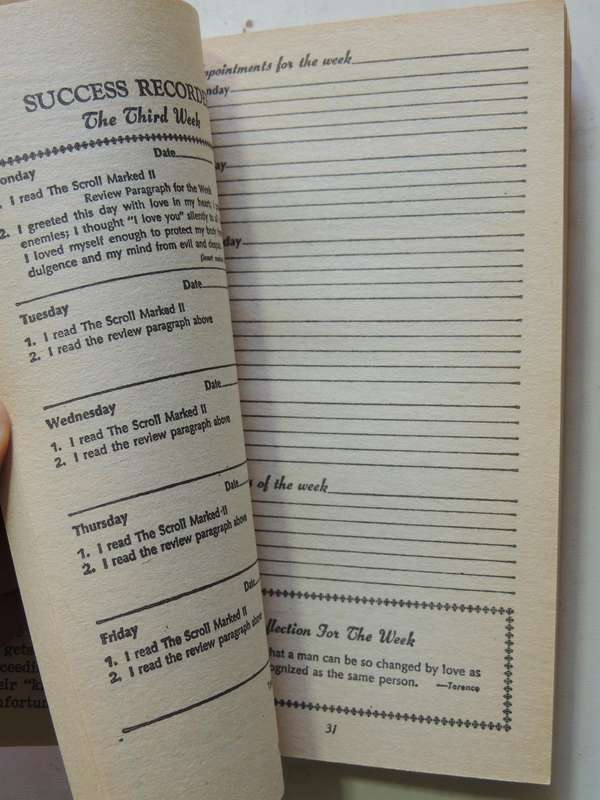 SUCCESS RECORDE
The Third Week
onday
Date
I read The Scroll Marked II
Review Paragraph for the Week
2. I greeted this day with love in my heart; I
enemies; I thought "I love you" silently to all
I loved myself enough to protect my body from
dulgence and my mind from evil and despair.
Tuesday
Date
1. I read The Scroll Marked II
2. I read the review paragraph above
Wednesday
Date
1. I read The Scroll Marked II
2. I read the review paragraph above
Thursday
Date
1. I read The Scroll Marked II
2. I read the review paragraph above
Friday
Date
1. I read The Scroll Marked II
2. I read the review paragraph above
ppointments for the week
nday
ay
day
of the week
flection For The Week
hat a man can be so changed by love as
ognized as the same person. —Terence
31
gets
ceedi
eir "k
nfortun